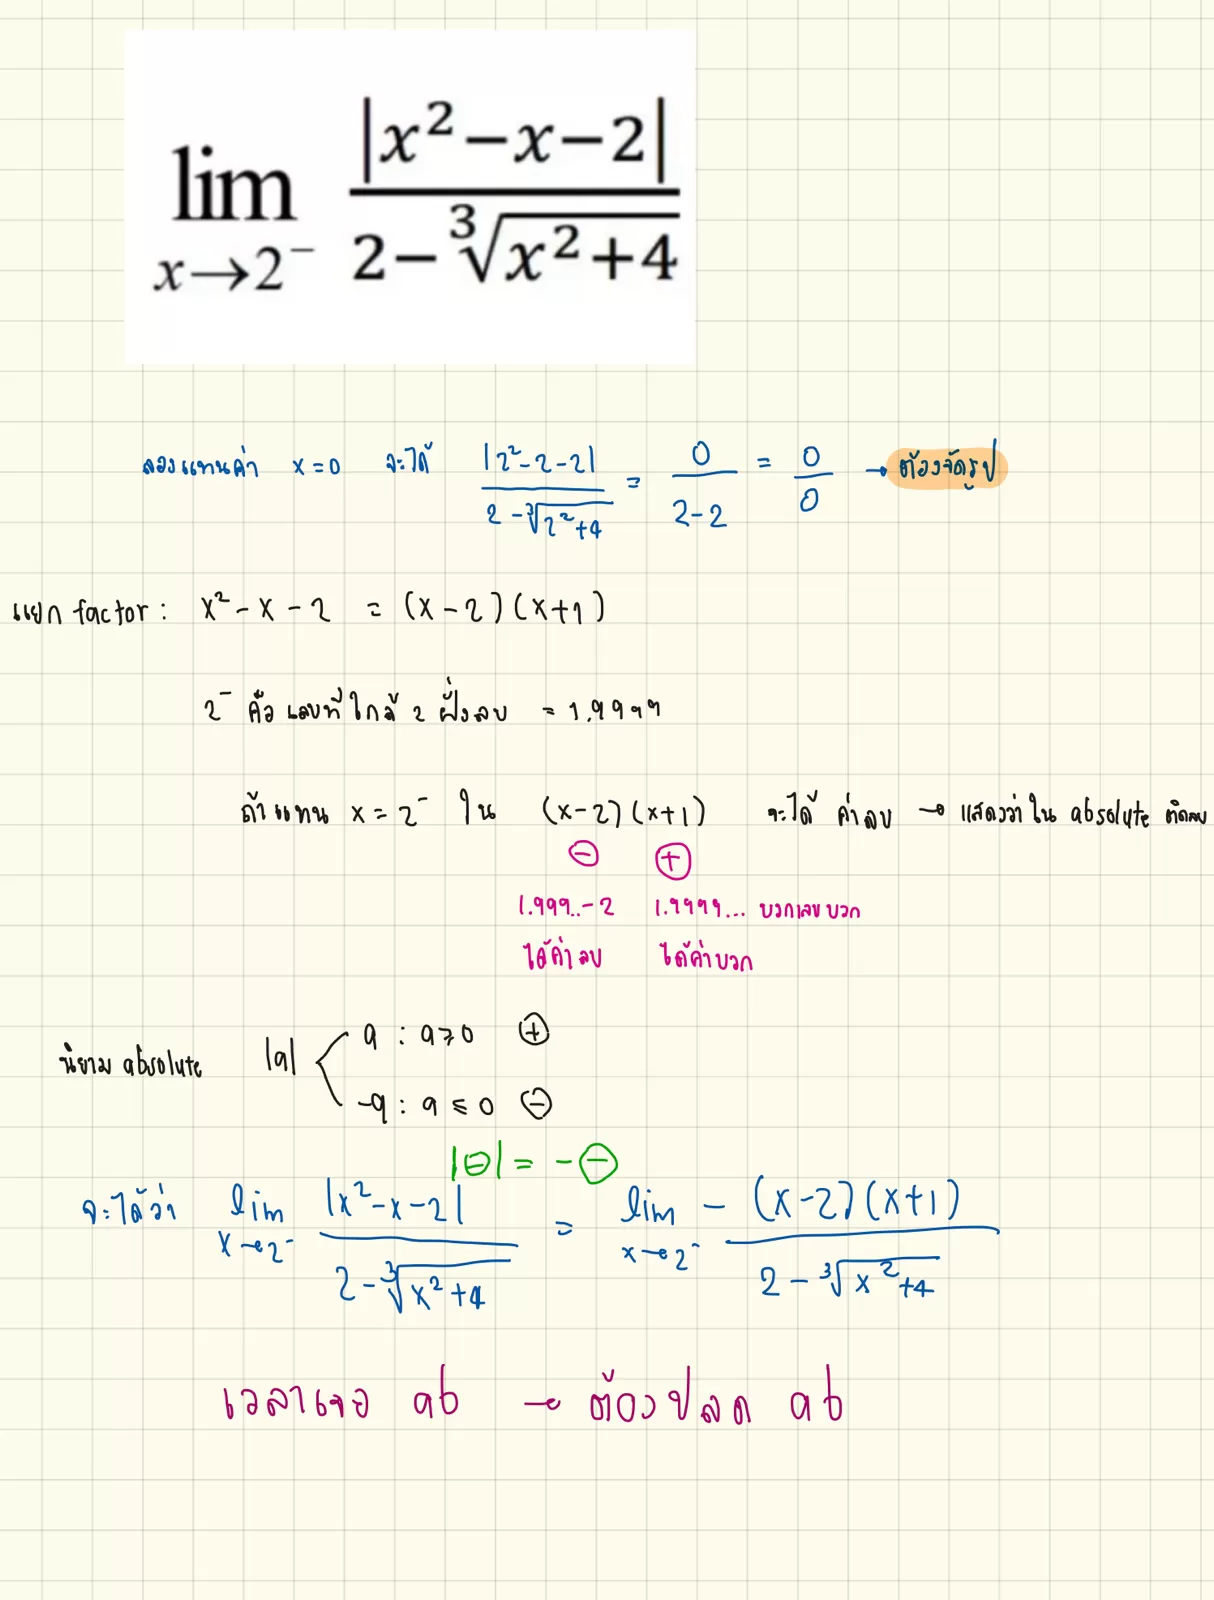 lim x→2⁻ |x²−x−2| / (2−∛(x²+4))
ลองแทนค่า x=0 จะได้ |2²-2-2| / (2-∛(2²+4)) = 0 / (2-2) = 0/0 → ต้องจัดรูป
แยก factor: x²-x-2 = (x-2)(x+1)
2⁻ คือ เลขที่ใกล้ 2 ฝั่งลบ = 1.9999
ถ้าแทน x=2⁻ ใน (x-2)(x+1) จะได้ ค่าลบ → แสดงว่าใน absolute ติดลบ
⊖ ⊕
1.999..-2 1.9999... บวกเลขบวก
ได้ค่าลบ ได้ค่าบวก
นิยาม absolute |a| a : a≥0 ⊕
-a : a≤0 ⊖
|⊖| = -⊖
จะได้ว่า lim x→2⁻ |x²-x-2| / (2-∛(x²+4)) = lim x→2⁻ -(x-2)(x+1) / (2-∛(x²+4))
เวลาเจอ ab → ต้องปลด ab